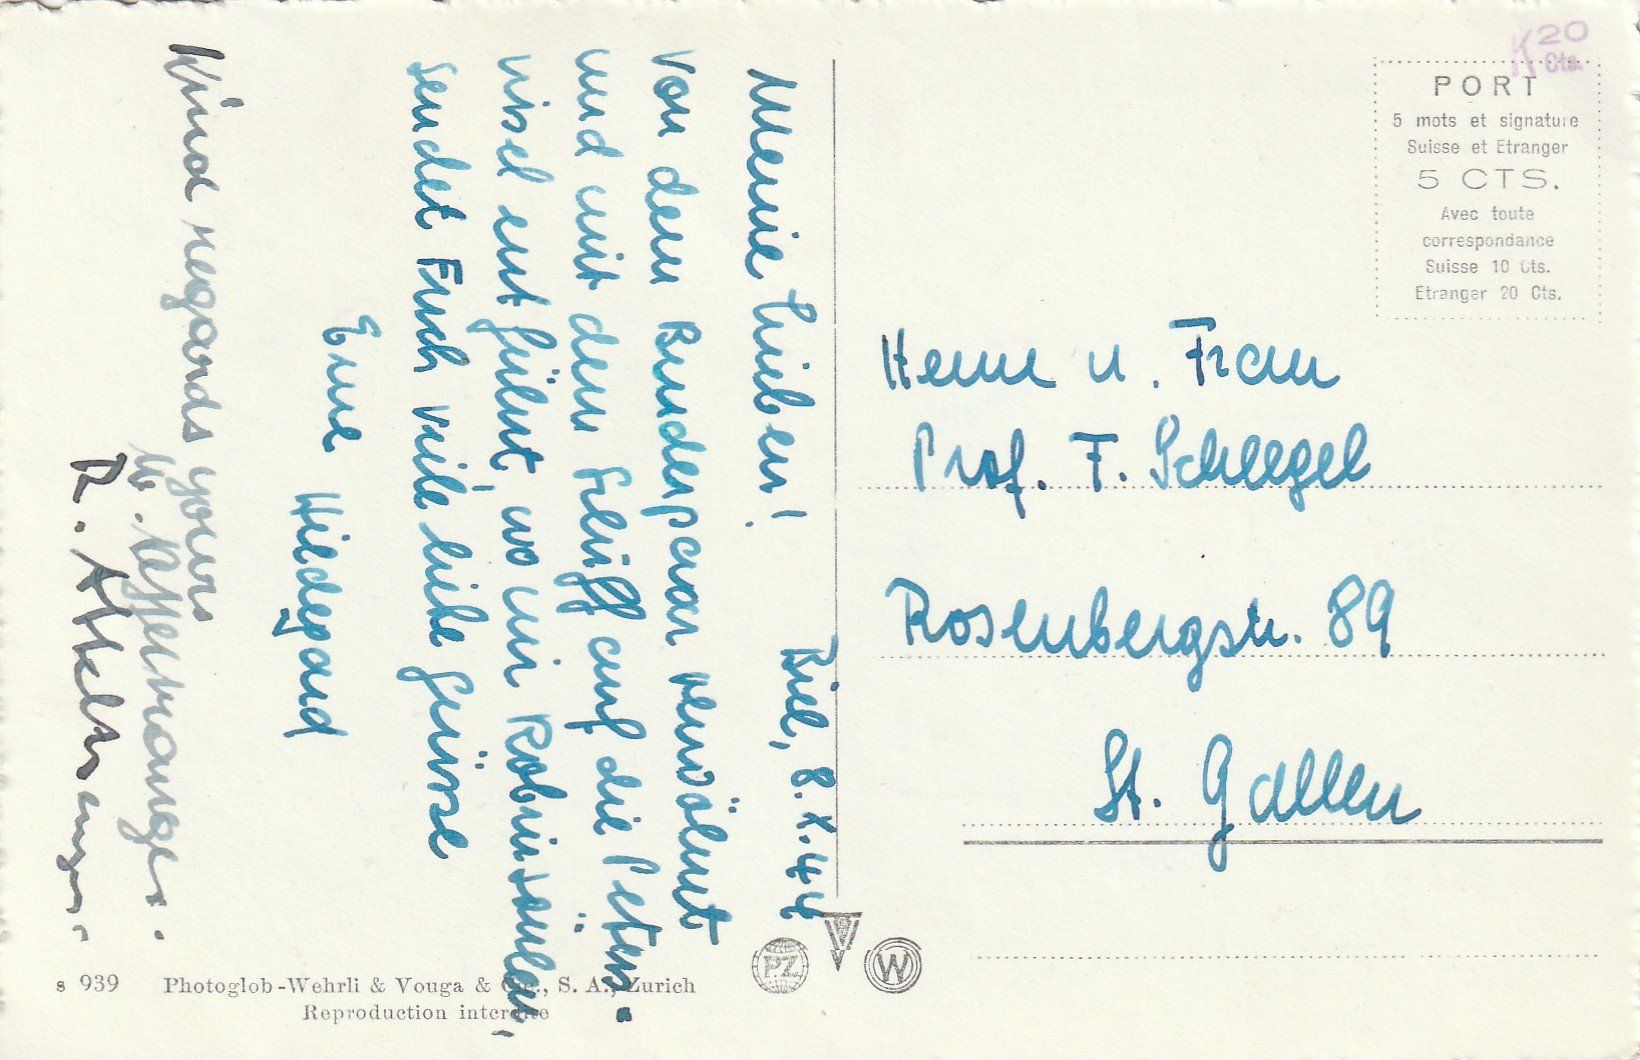 Biel, 8.X.44
Meine Lieben!
Von dem Bruderpaar verwöhnt
und mit dem Schiff auf die Peters-
insel entführt, wo wir Robinsönlen,
sendet Euch viele liebe Grüsse
Eure
Hildegard
Kind regards yours
R.
K 20
Cts.
PORT
5 mots et signature
Suisse et Etranger
5 CTS.
Avec toute
correspondance
Suisse 10 Cts.
Etranger 20 Cts.
Herrn u. Frau
Prof. F. Scheegel
Rosenbergstr. 89
St. Gallen
P.Z.
W
s 939 Photoglob-Wehrli & Vouga & Cie., S. A., Zurich
Reproduction interdite